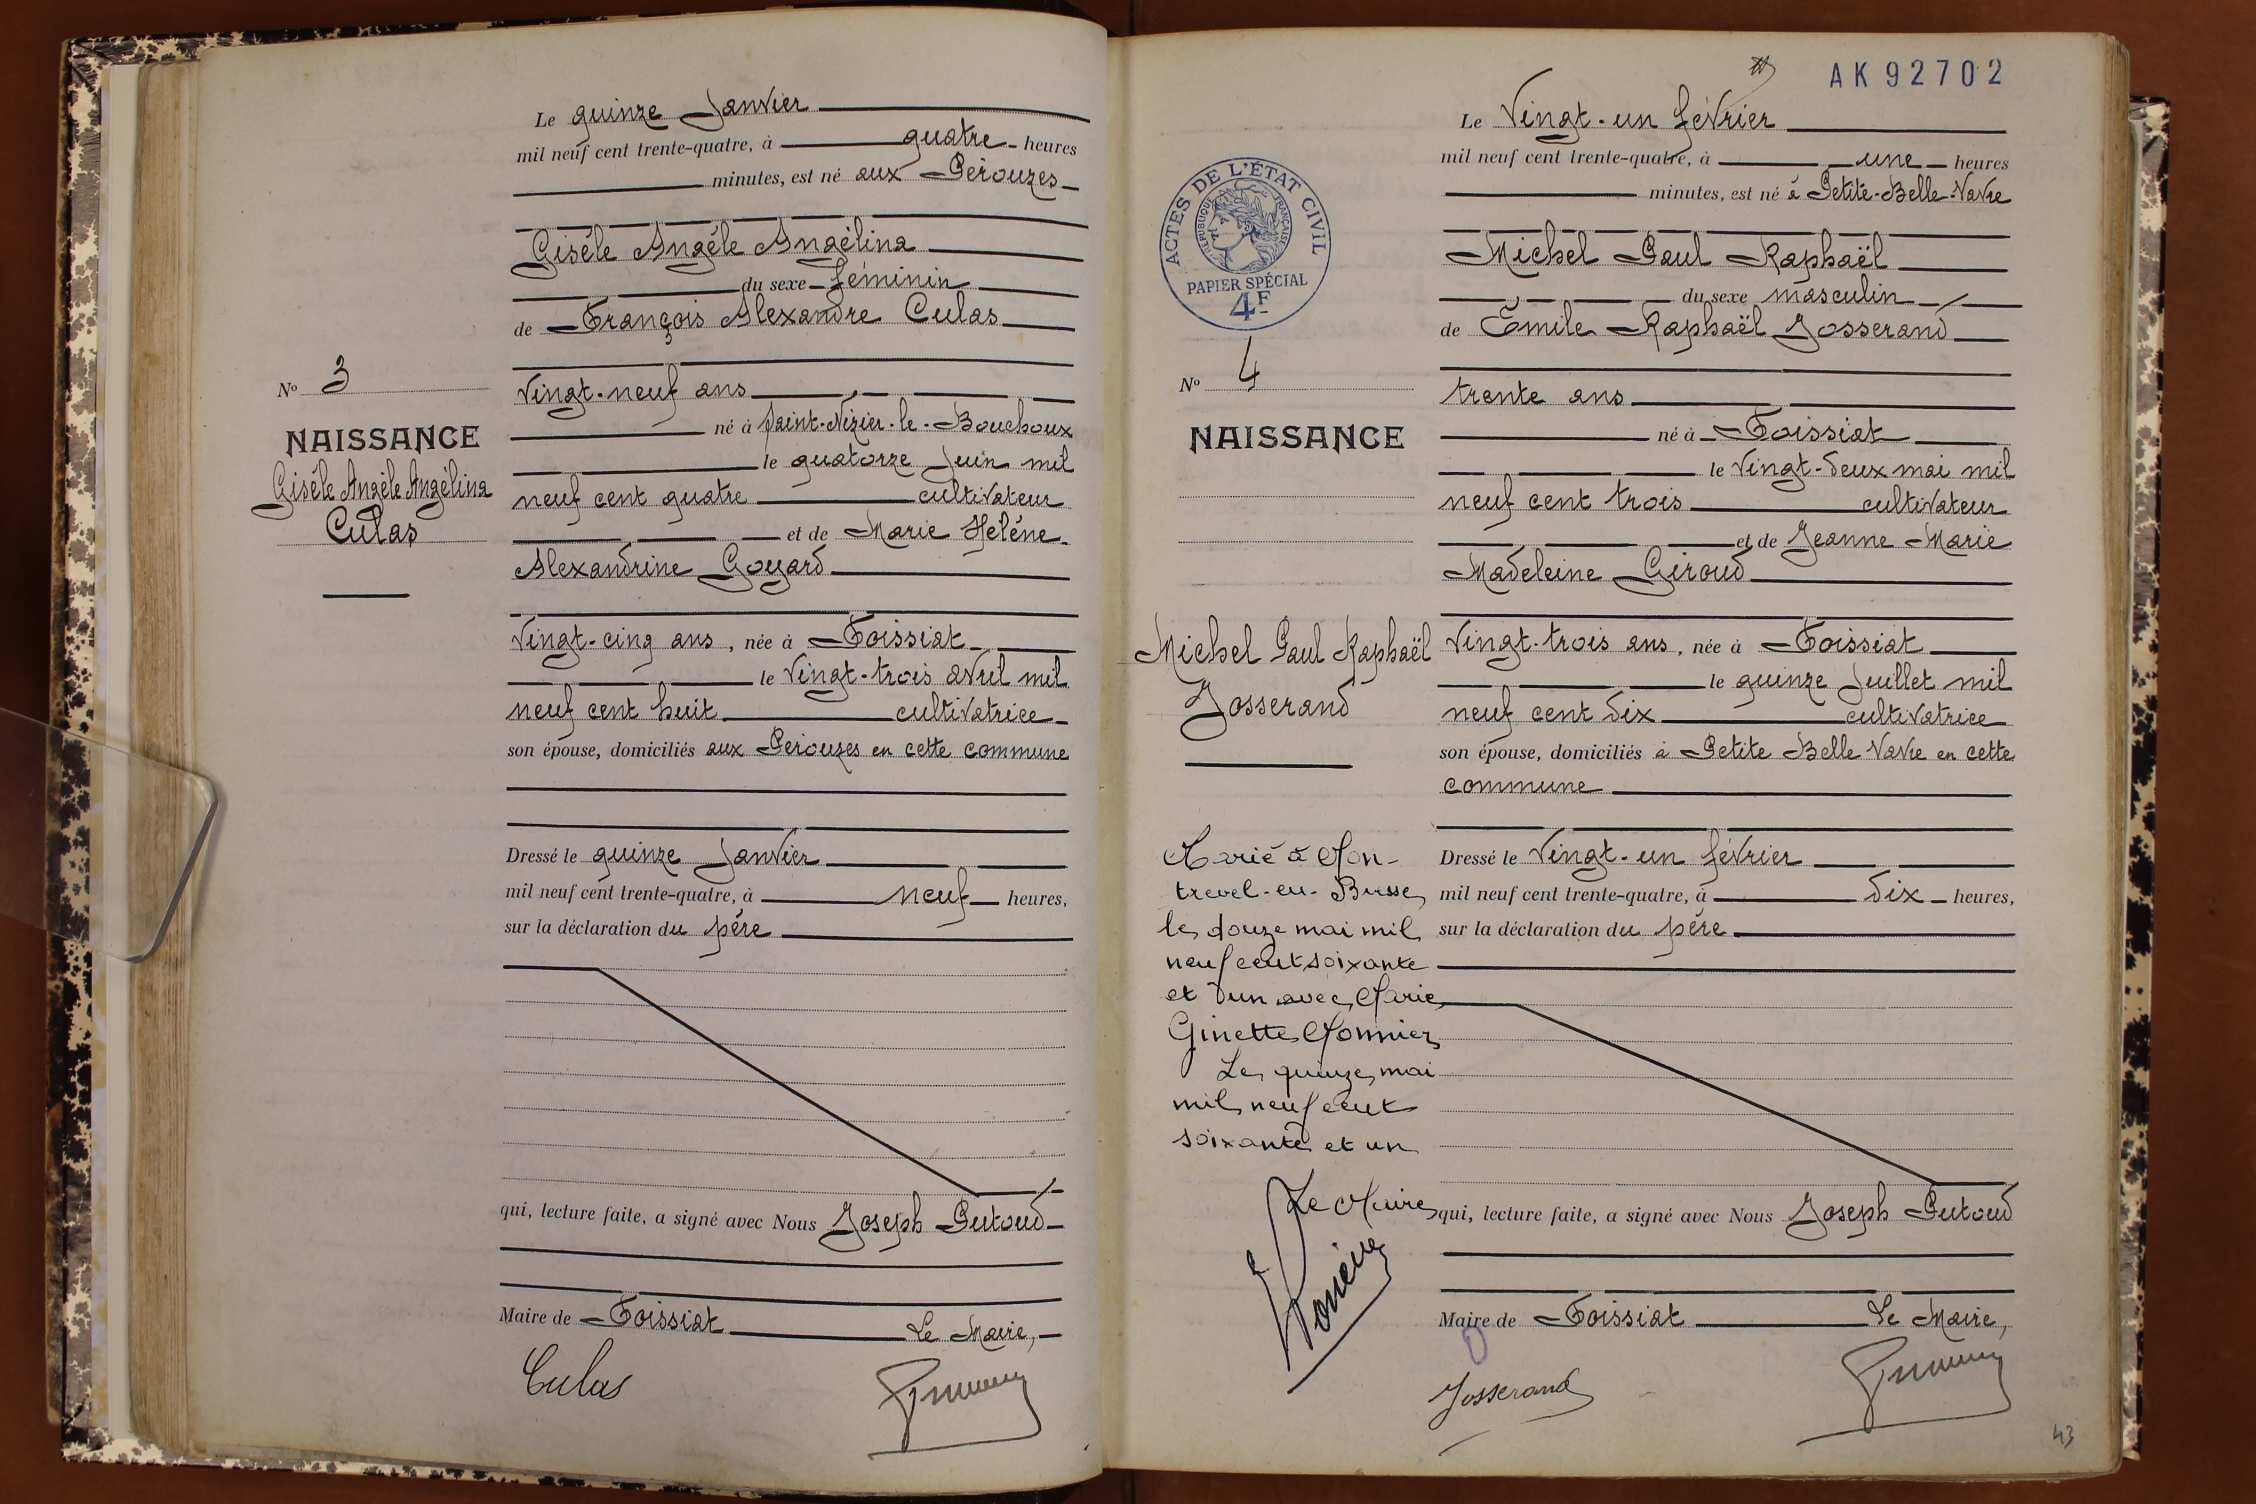 Le quinze Janvier
mil neuf cent trente-quatre, à quatre heures
minutes, est né aux Perouzes
Gisèle Angèle Angèlina
du sexe féminin
de François Alexandre Culas
Vingt-neuf ans
né à Saint-Nizier-le-Bouchoux
le quatorze Juin mil
neuf cent quatre cultivateur
et de Marie Helène
Alexandrine Goyard
Vingt-cinq ans, née à Foissiat
le Vingt-trois avril mil
neuf cent huit cultivatrice
son épouse, domiciliés aux Perouzes en cette commune
Dressé le quinze Janvier
mil neuf cent trente-quatre, à neuf heures,
sur la déclaration du père
qui, lecture faite, a signé avec Nous Joseph Putoud
Maire de Foissiat Le Maire,
Culas
No 3
NAISSANCE
Gisèle Angèle Angèlina
Culas
AK 92702
Le Vingt-un février
mil neuf cent trente-quatre, à une heures
minutes, est né à Petite-Belle-Vavre
Michel Paul Raphaël
du sexe masculin
de Emile Raphaël Josserand
trente ans
né à Foissiat
le Vingt-deux mai mil
neuf cent trois cultivateur
et de Jeanne Marie
Madeleine Giroud
Vingt-trois ans, née à Foissiat
le quinze Juillet mil
neuf cent dix cultivatrice
son épouse, domiciliés à Petite Belle Vavre en cette
commune
Dressé le Vingt-un février
mil neuf cent trente-quatre, à dix heures,
sur la déclaration du père
qui, lecture faite, a signé avec Nous Joseph Putoud
Maire de Foissiat Le Maire,
Josserand
ACTES DE L'ÉTAT CIVIL
RÉPUBLIQUE FRANÇAISE
PAPIER SPÉCIAL
4F
No 4
NAISSANCE
Michel Paul Raphaël
Josserand
Marié à Mon-
trevel-en-Bresse
le douze mai mil
neuf cent soixante
et un avec Marie
Ginette Monnier
Le quinze mai
mil neuf cent
soixante et un
Le Maire
43